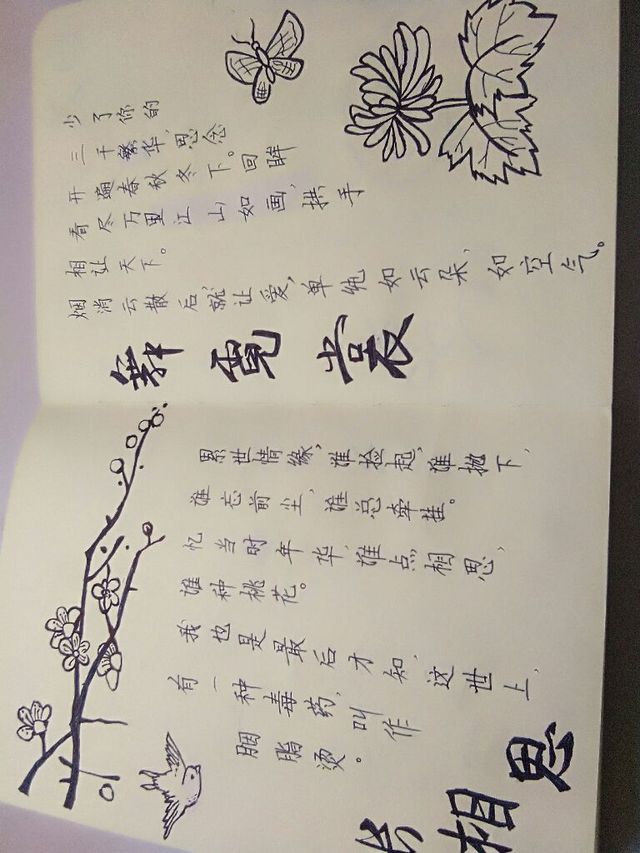 少了你的
三千繁华,思念
开遍春秋冬下。回眸
看尽万里江山如画,拱手
相让天下。
烟消云散后就让爱,单纯如云朵,如空气。
舞霓裳
累世情缘,谁捡起,谁抛下,
谁忘前尘,谁总牵挂。
忆当时年华,谁点相思,
谁种桃花。
我也是最后才知,这世上,
有一种毒药,叫作
胭脂烫。
长相思